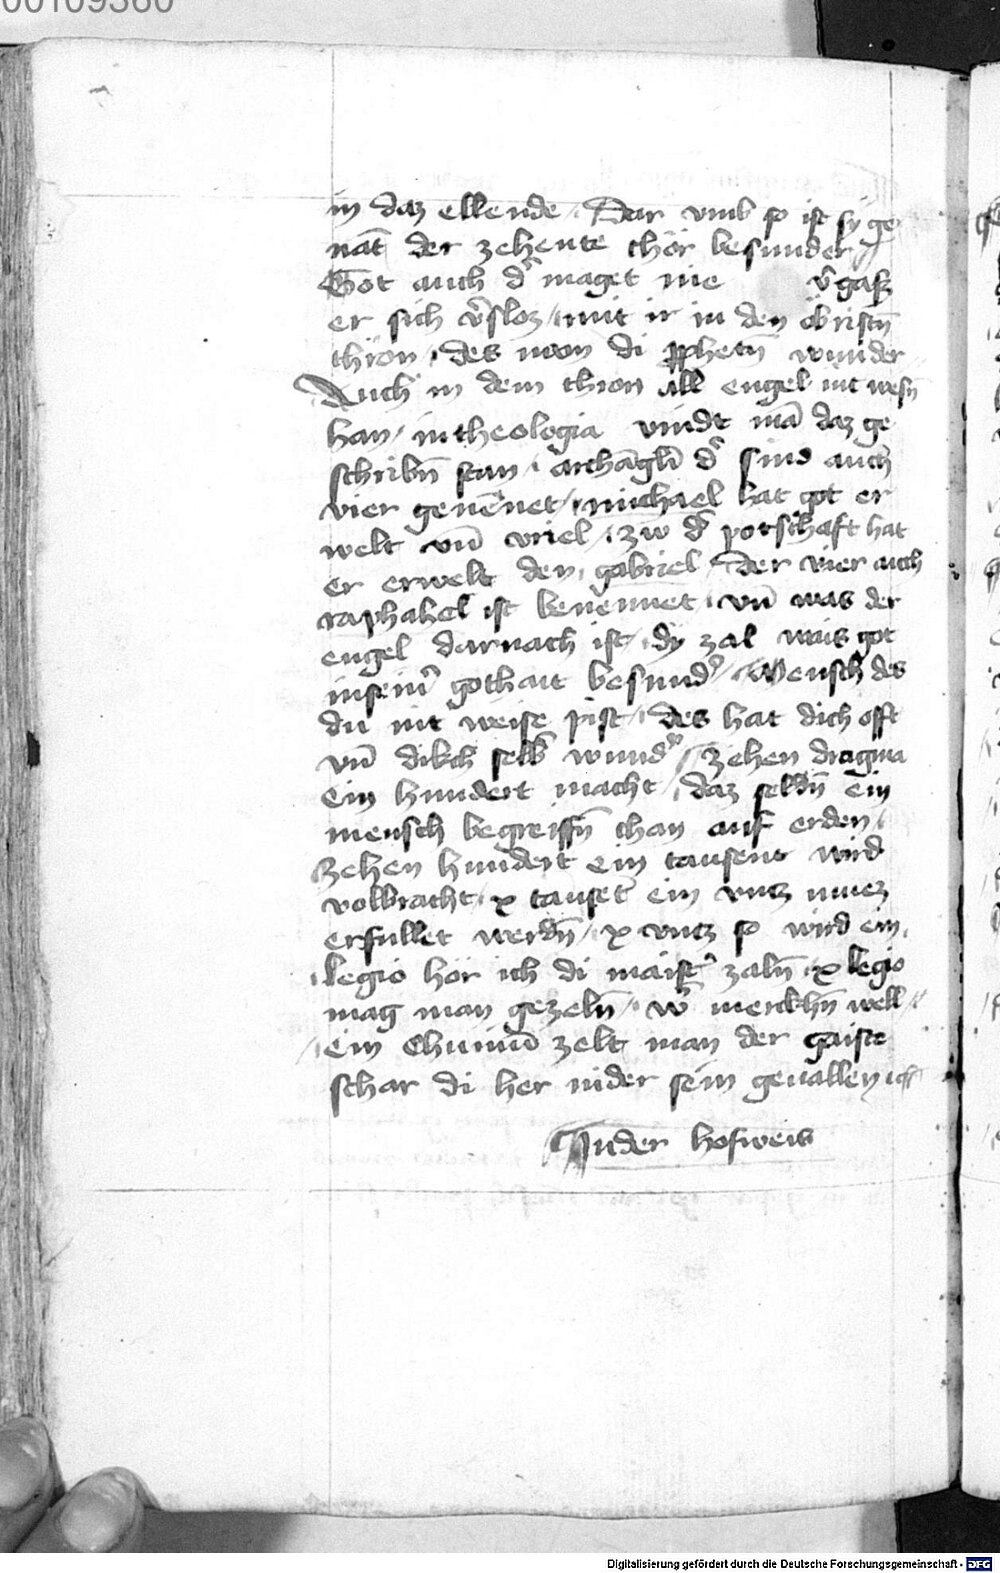 00109380
in daz ellende / Dar vmb so ist sy ge
nāt der zehente chör besunder //
Got auch d' maget nie v'gasz
er sich v'sloz / mit ir in den öbristn̄
thron / des won di ꝓphetn̄ wunder
Auch in dem thron all engel nit wesn̄
han / in theologia vindt mā daz ge
schribn̄ stan / archāgli d' sind auch
vier genēnet / michael hat got er
welt vn̄ vriel / zw d' potschaft hat
er erwelt den gabriel / Der vier auch
raphahel ist benennet / vn̄ was der
engel darnach ist / dy zal wais got
in sein' gothait besund' / Mensch des
du nit weise pist / des hat dich offt
vn̄ dikch selb wund' // zehen dragma
ein hundert macht / daz selbn̄ ein
mensch begreiffn̄ chan auf erden /
zehen hundert ein tausent wird
volbracht / x tauset ein vntz muez
erfullet werdn̄ / x vntz so wird ein
legio hör ich di maist' zaln̄ / x legio
mag man gezeln̄ / w' merckhn̄ well /
ein Chunnn̄ zelt man der gaiste
schar di her nider sein geuallen //
In der hofweis
Digitalisierung gefördert durch die Deutsche Forschungsgemeinschaft - DFG